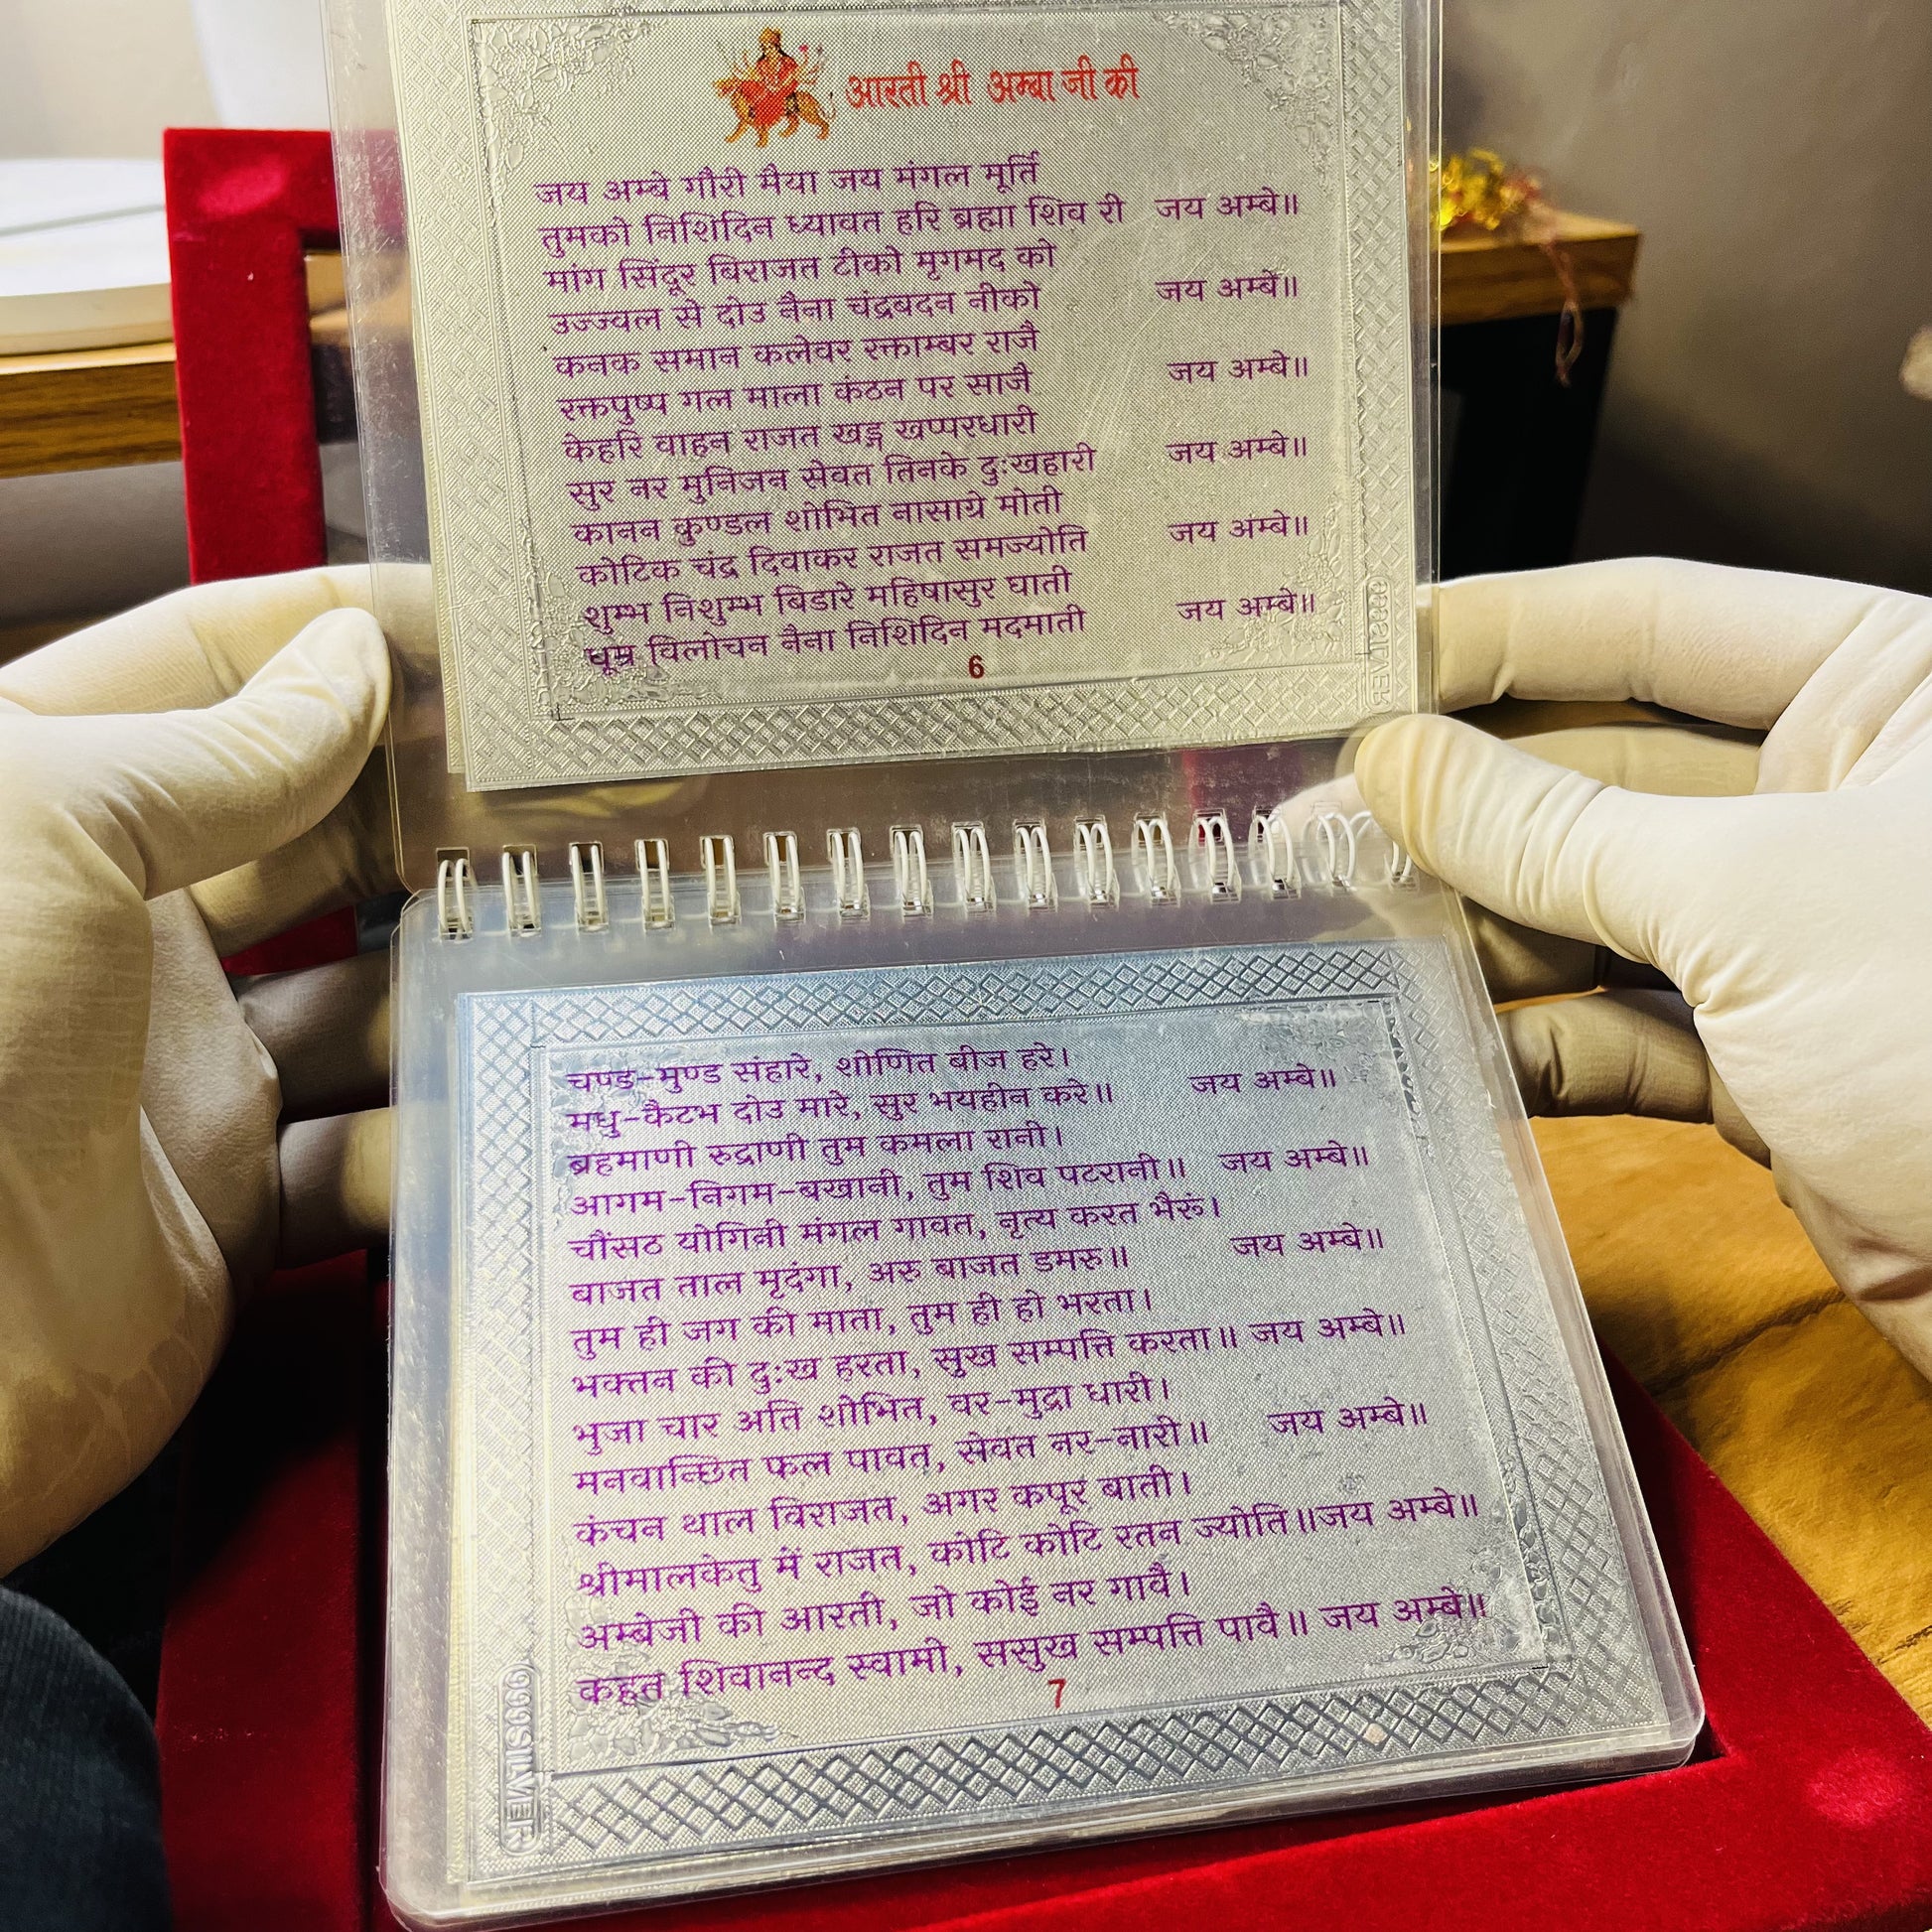 आरती श्री अम्बा जी की
जय अम्बे गौरी मैया जय मंगल मूर्ति
तुमको निशिदिन ध्यावत हरि ब्रह्मा शिव री जय अम्बे॥
मांग सिंदूर बिराजत टीको मृगमद को
उज्ज्वल से दोउ नैना चंद्रबदन नीको जय अम्बे॥
कनक समान कलेवर रक्ताम्बर राजै
रक्तपुष्प गल माला कंठन पर साजै जय अम्बे॥
केहरि वाहन राजत खड्ग खप्परधारी
सुर नर मुनिजन सेवत तिनके दुःखहारी जय अम्बे॥
कानन कुण्डल शोभित नासाग्रे मोती
कोटिक चंद्र दिवाकर राजत समज्योति जय अम्बे॥
शुम्भ निशुम्भ बिडारे महिषासुर घाती
धूम्र विलोचन नैना निशिदिन मदमाती जय अम्बे॥
6
999SILVER
चण्ड-मुण्ड संहारे, शोणित बीज हरे।
मधु-कैटभ दोउ मारे, सुर भयहीन करे॥ जय अम्बे॥
ब्रहमाणी रुद्राणी तुम कमला रानी।
आगम-निगम-बखानी, तुम शिव पटरानी॥ जय अम्बे॥
चौंसठ योगिनी मंगल गावत, नृत्य करत भैरूं।
बाजत ताल मृदंगा, अरु बाजत डमरु॥ जय अम्बे॥
तुम ही जग की माता, तुम ही हो भरता।
भक्तन की दुःख हरता, सुख सम्पत्ति करता॥ जय अम्बे॥
भुजा चार अति शोभित, वर-मुद्रा धारी।
मनवान्छित फल पावत, सेवत नर-नारी॥ जय अम्बे॥
कंचन थाल विराजत, अगर कपूर बाती।
श्रीमालकेतु में राजत, कोटि कोटि रतन ज्योति॥जय अम्बे॥
अम्बेजी की आरती, जो कोई नर गावै।
कहत शिवानन्द स्वामी, ससुख सम्पत्ति पावै॥ जय अम्बे॥
7
999SILVER